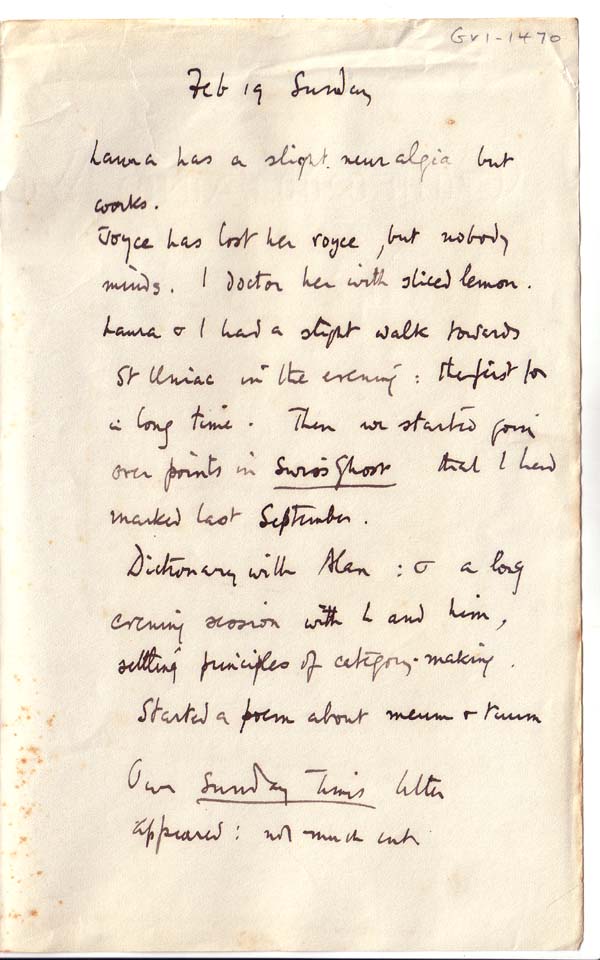 GV1-1470
Feb 19 Sunday
Laura has a slight neuralgia but
works.
Joyce has lost her voyce, but nobody
minds. I doctor her with sliced lemon.
Laura & I had a slight walk towards
St Uniac in the evening: the first for
a long time. Then we started going
over points in Swiss Ghost that I had
marked last September.
Dictionary with Alan: & a long
evening session with L and him,
settling principles of category-making.
Started a poem about meum & tuum
Our Sunday Times letter
appeared: not much cut